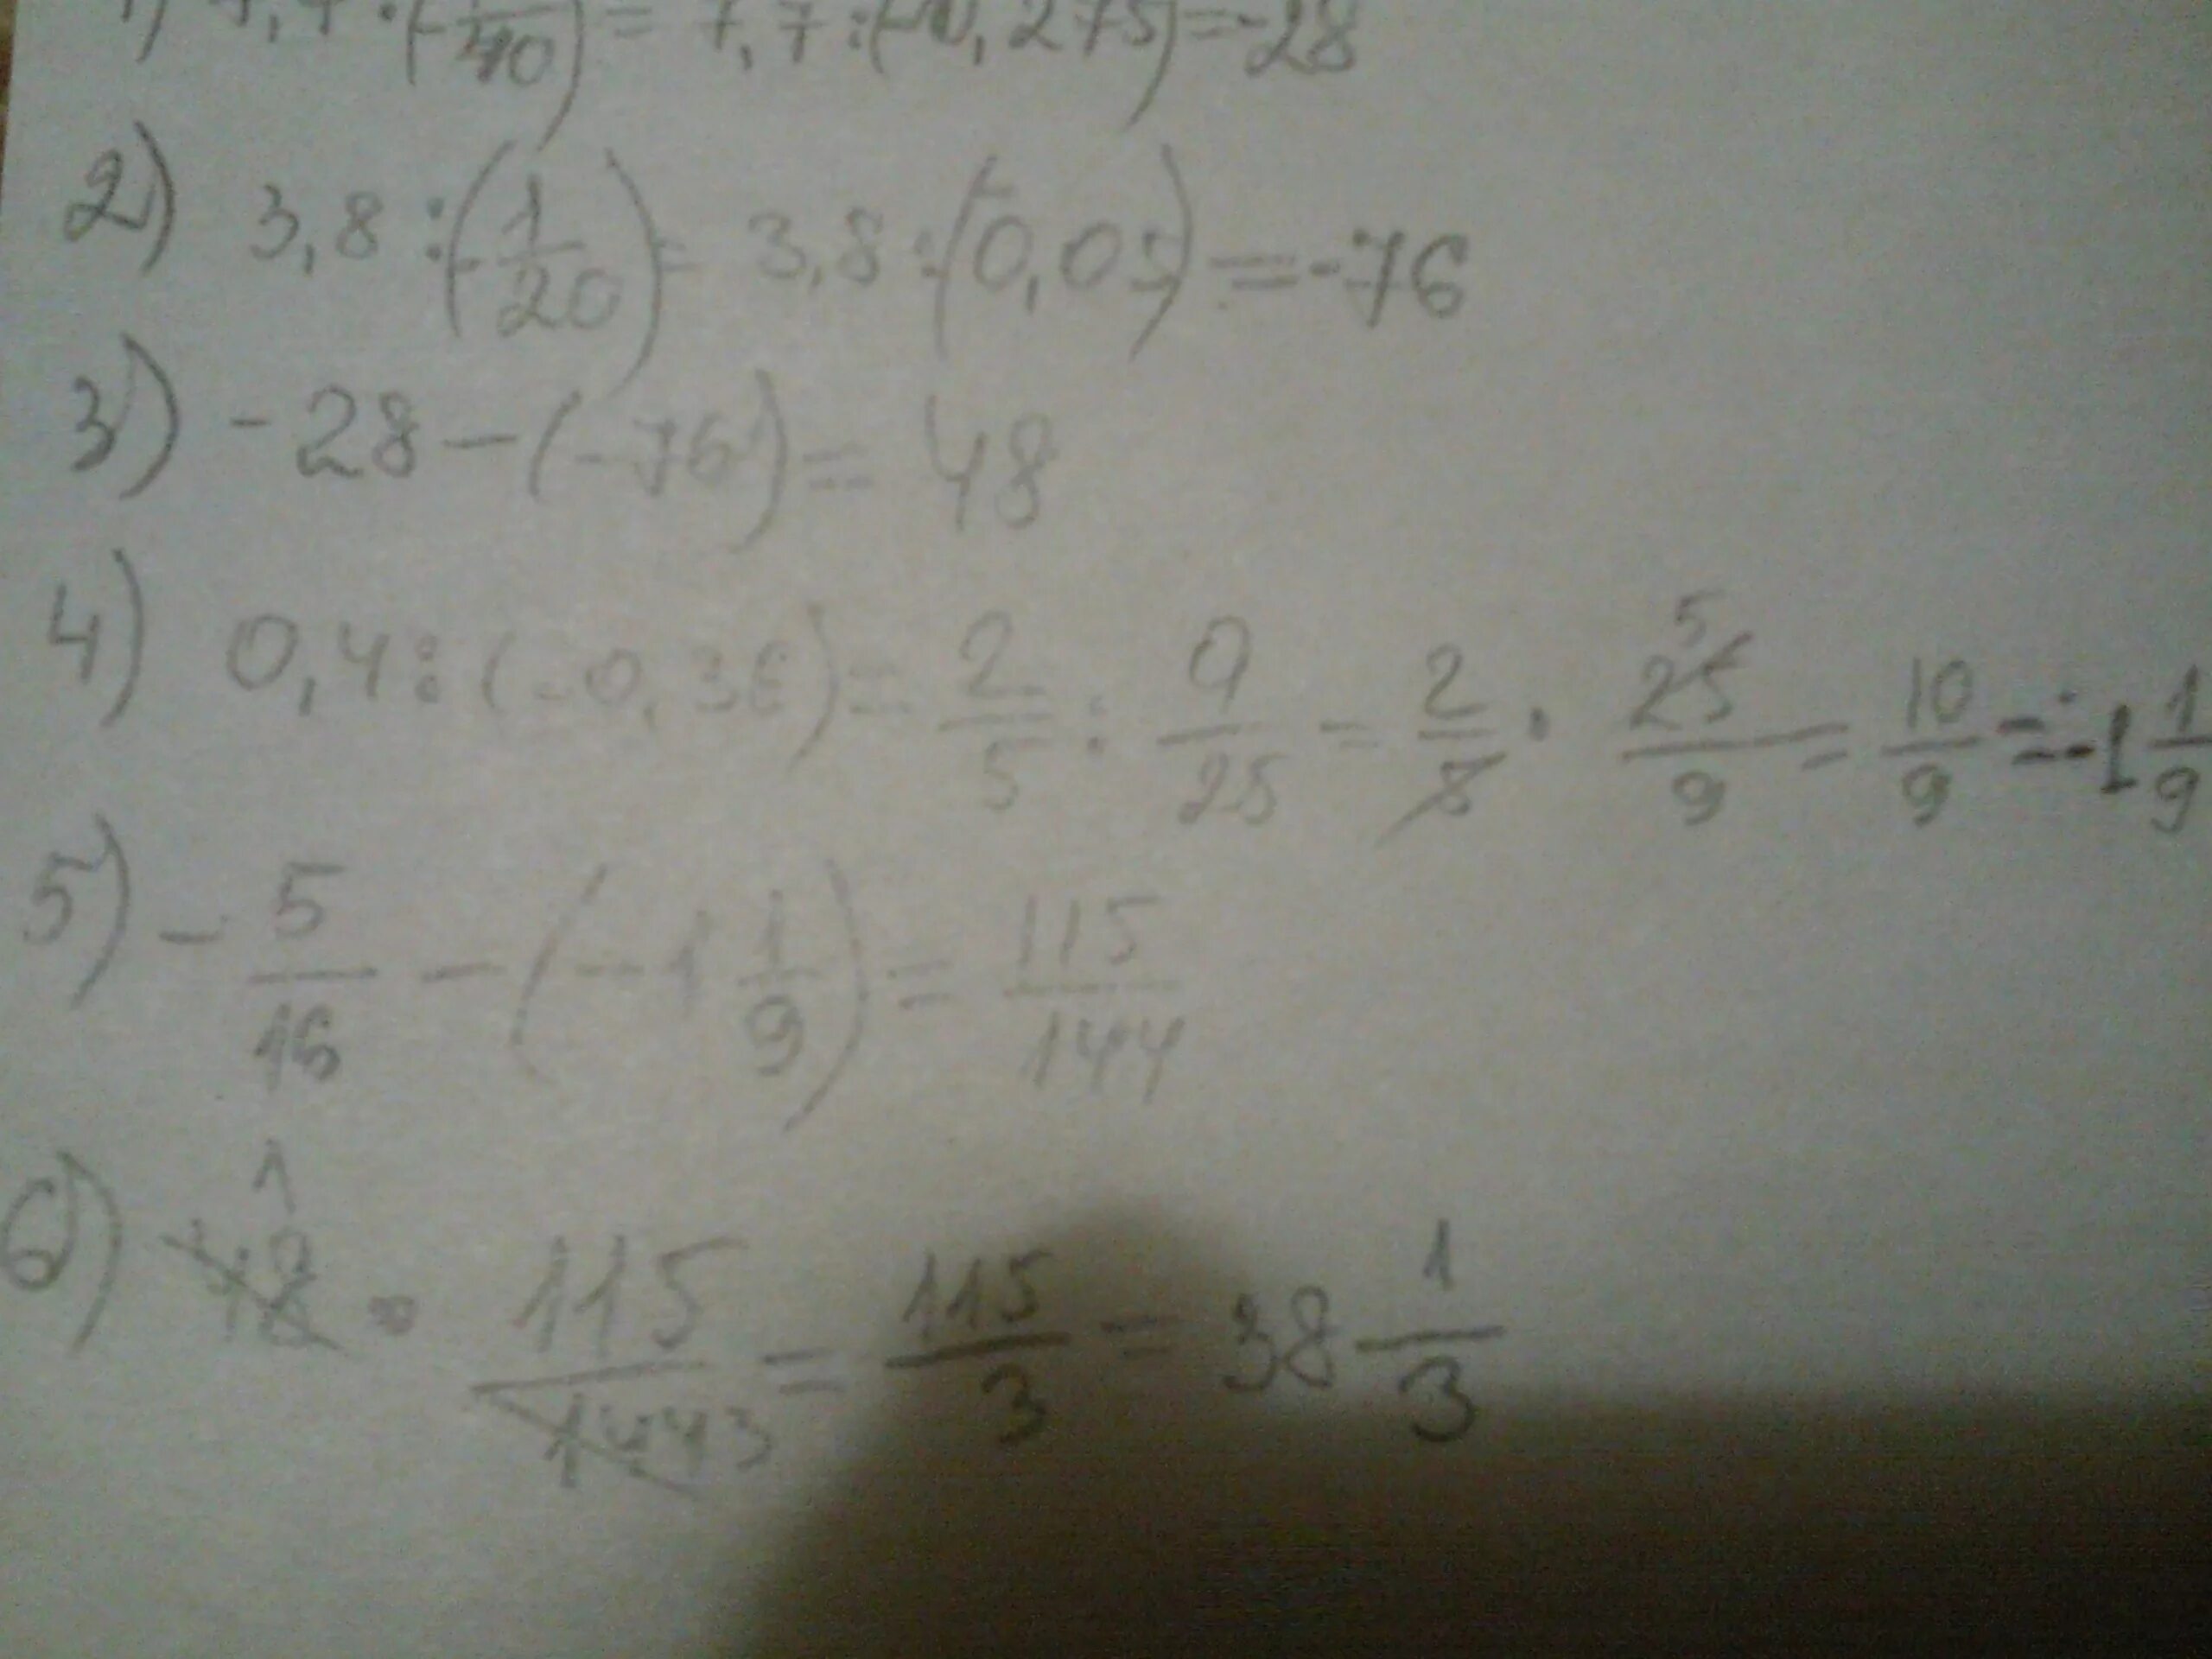 1) 7,7 : (-11/40) = 7,7 : (-0,275) = -28
2) 3,8 : (-1/20) = 3,8 : (-0,05) = -76
3) -28 - (-76) = 48
4) 0,4 : (-0,36) = 2/5 : 9/25 = 2/5 · 25/9 5 = 10/9 = -1 1/9
5) -5/16 - (-1 1/9) = 115/144
6) 48 1 · 115/144 3 = 115/3 = 38 1/3